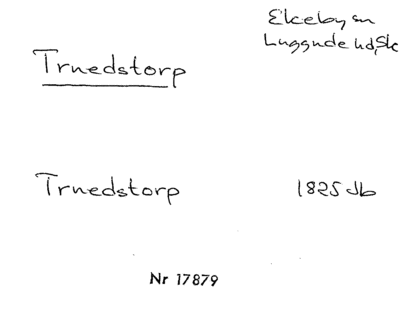 Ekeby sn
Luggude hd, Sk
Truedstorp
Truedstorp 1825 Jb
Nr 17879